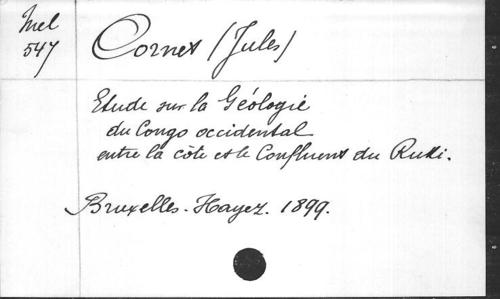 Mel
547
Cornet (Jules)
Etude sur la Géologie
du Congo occidental
entre la côte et le Confluent du Ruki.
Bruxelles - Hayez. 1899.